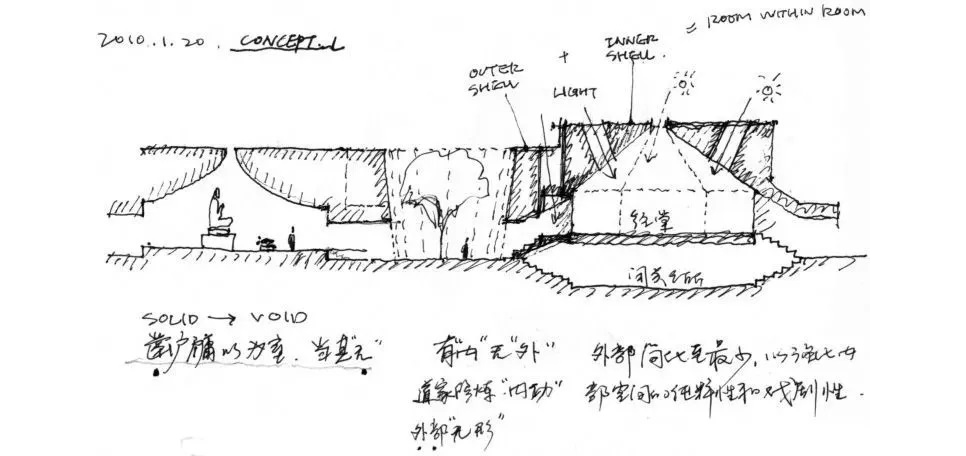 2010.1.20. CONCEPT
= ROOM WITHIN ROOM
OUTER SHELL
+
INNER SHELL.
LIGHT
经堂
闭关
SOLID → VOID
凿户牖以为室. 当其"无"
有"内"无"外"
道家修炼"内功"
外部"无形"
外部简化至最少, 以强化内
部空间的纯粹性和戏剧性.